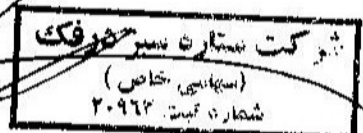 شرکت ستاره سبز دورفک
(سهامی خاص)
شماره ثبت ۲۰۹۶۲